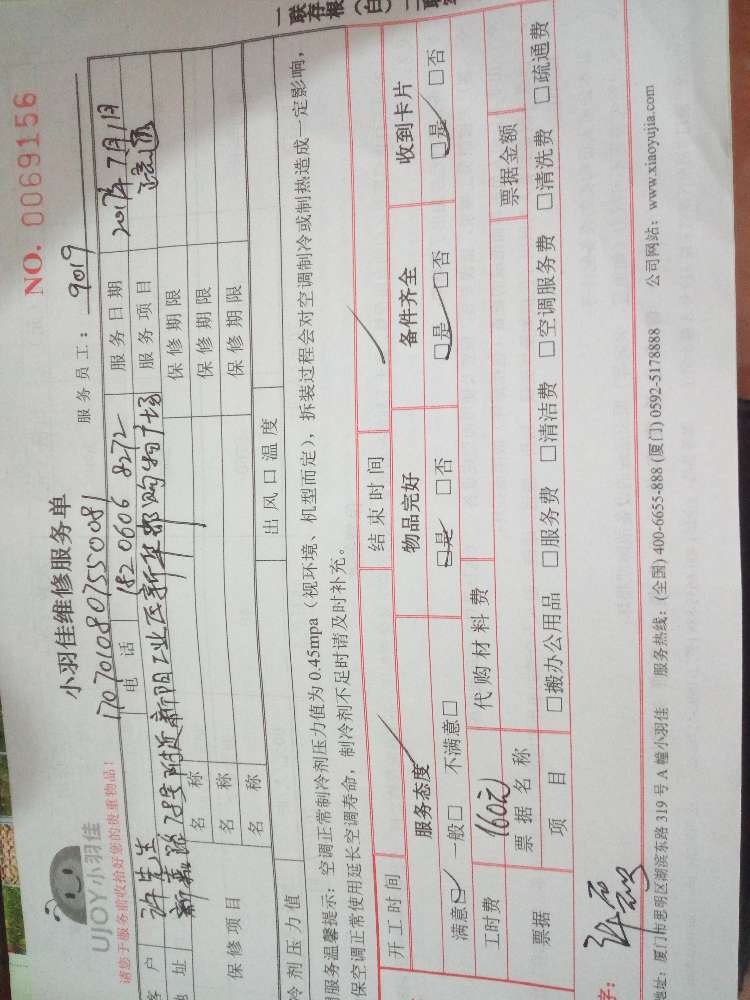 一联存根(白)
NO. 0069156
UJOY小羽佳
小羽佳维修服务单
服务员工：9019
请您于服务前收拾好您的贵重物品！
17070108075550081
客户 许先生 电话 182 0606 8272 服务日期 2017年7月1日
地址 新嘉路28号附近新阳工业区新华都购物广场 服务项目 疏通
保修项目 名称 保修期限
名称 保修期限
名称 保修期限
冷剂压力值 出风口温度
服务温馨提示：空调正常制冷剂压力值为 0.45mpa（视环境、机型而定），拆装过程会对空调制冷或制热造成一定影响，
保空调正常使用延长空调寿命，制冷剂不足时请及时补充。
开工时间 结束时间
服务态度 物品完好 备件齐全 收到卡片
满意□ 一般□ 不满意□ □是 □否 □是 □否 □是 □否
工时费 160元 代购材料费
票据 票据名称 票据金额
项目 □搬办公用品 □服务费 □清洁费 □空调服务费 □清洗费 □疏通费
字：
地址：厦门市思明区湖滨东路 319 号 A 幢小羽佳 服务热线：(全国) 400-6655-888 (厦门) 0592-5178888 公司网站：www.xiaoyujia.com